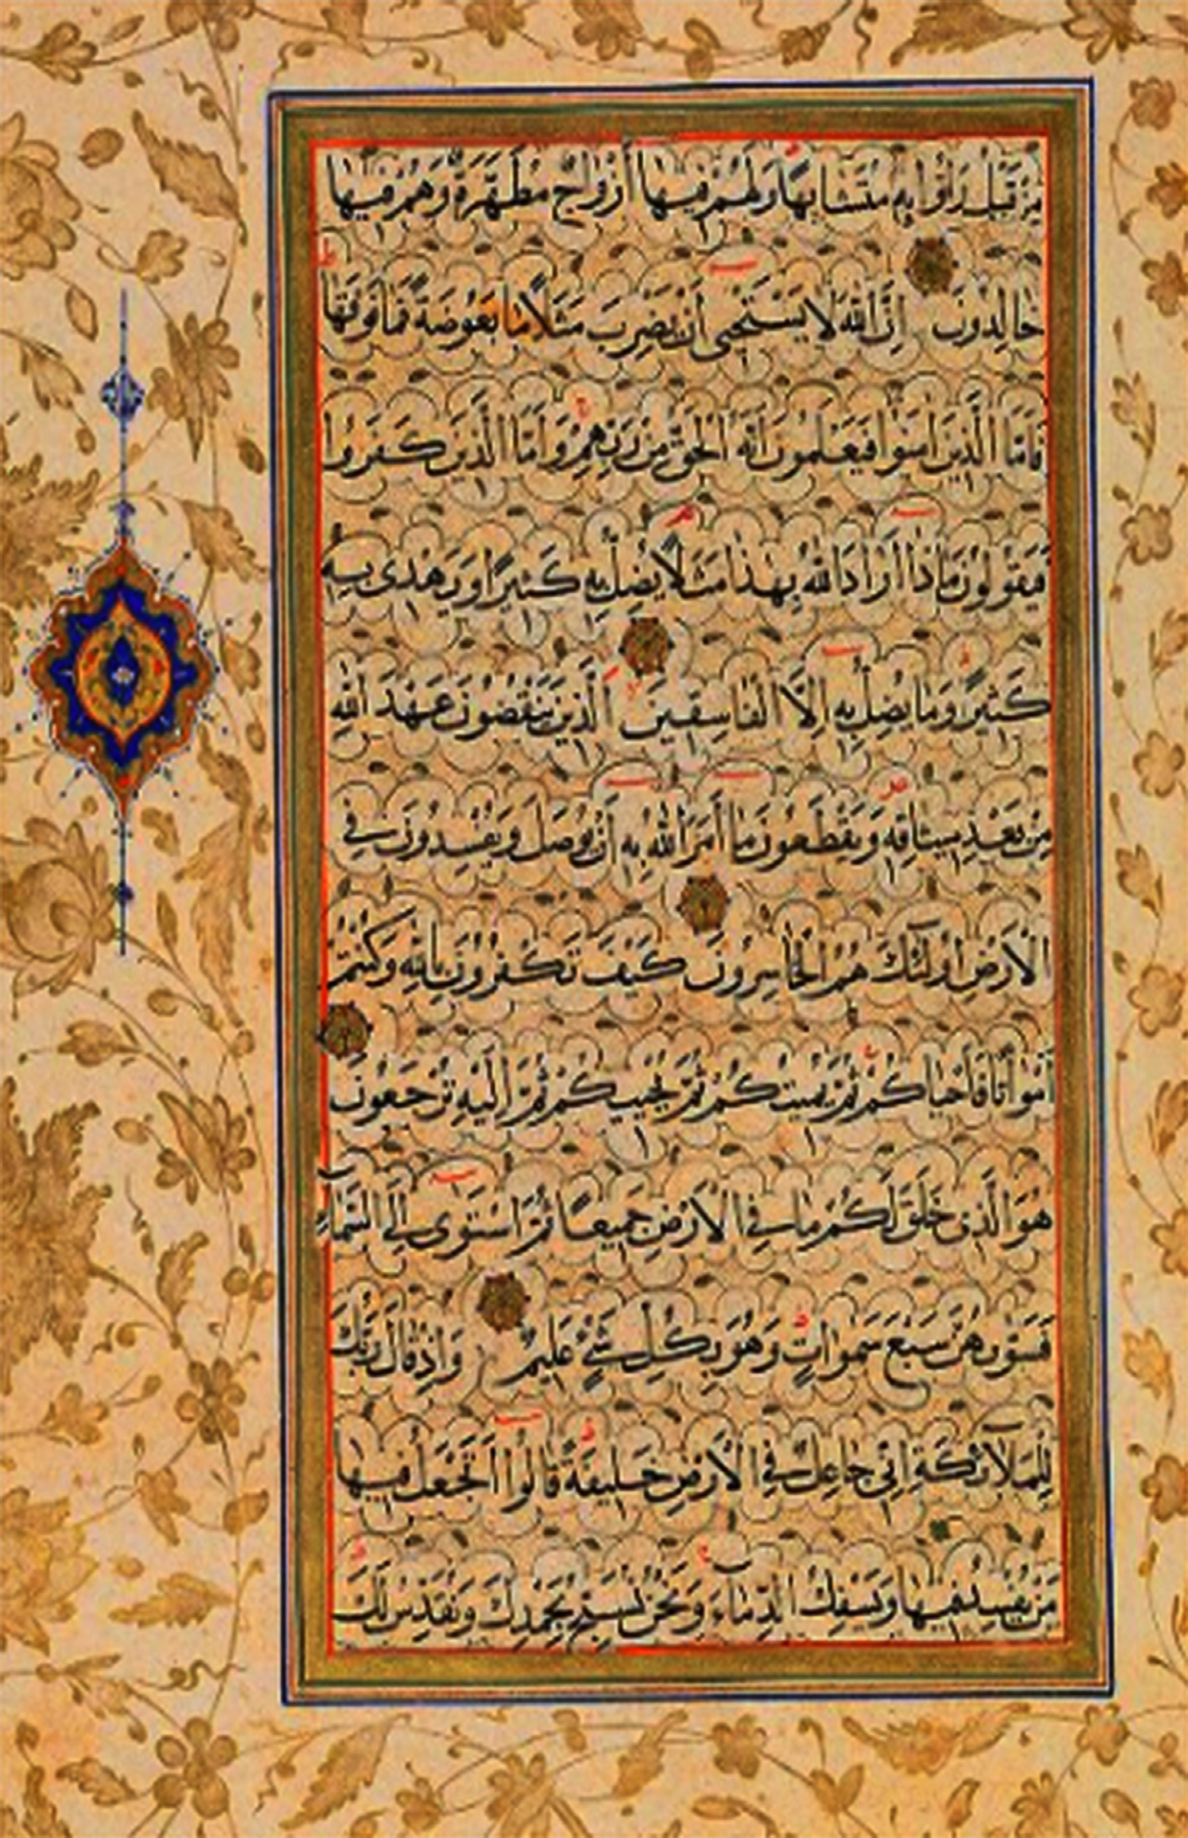 مِنْ قَبْلُ وَاُتُوا بِهِ مُتَشَابِهًا وَلَهُمْ فِيهَا أَزْوَاجٌ مُطَهَّرَةٌ وَهُمْ فِيهَا
خَالِدُونَ اِنَّ اللهَ لَا يَسْتَحْيِى أَنْ يَضْرِبَ مَثَلًا مَا بَعُوضَةً فَمَا فَوْقَهَا
فَاَمَّا الَّذِينَ اٰمَنُوا فَيَعْلَمُونَ اَنَّهُ الْحَقُّ مِنْ رَبِّهِمْ وَاَمَّا الَّذِينَ كَفَرُوا
فَيَقُولُونَ مَاذَا أَرَادَ اللهُ بِهٰذَا مَثَلًا يُضِلُّ بِهِ كَثِيرًا وَيَهْدِى بِهِ
كَثِيرًا وَمَا يُضِلُّ بِهِ اِلَّا الْفَاسِقِينَ اَلَّذِينَ يَنْقُضُونَ عَهْدَ اللهِ
مِنْ بَعْدِ مِيثَاقِهِ وَيَقْطَعُونَ مَا أَمَرَ اللهُ بِهِ أَنْ يُوصَلَ وَيُفْسِدُونَ فِى
الْاَرْضِ اُولٰئِكَ هُمُ الْخَاسِرُونَ كَيْفَ تَكْفُرُونَ بِاللهِ وَكُنْتُمْ
اَمْوَاتًا فَاَحْيَاكُمْ ثُمَّ يُمِيتُكُمْ ثُمَّ يُحْيِيكُمْ ثُمَّ اِلَيْهِ تُرْجَعُونَ
هُوَ الَّذِى خَلَقَ لَكُمْ مَا فِى الْاَرْضِ جَمِيعًا ثُمَّ اسْتَوٰى اِلَى السَّمَاءِ
فَسَوّٰىهُنَّ سَبْعَ سَمٰوَاتٍ وَهُوَ بِكُلِّ شَىْءٍ عَلِيمٌ وَاِذْ قَالَ رَبُّكَ
لِلْمَلَائِكَةِ اِنِّى جَاعِلٌ فِى الْاَرْضِ خَلِيفَةً قَالُوا اَتَجْعَلُ فِيهَا
مَنْ يُفْسِدُ فِيهَا وَيَسْفِكُ الدِّمَاءَ وَنَحْنُ نُسَبِّحُ بِحَمْدِكَ وَنُقَدِّسُ لَكَ